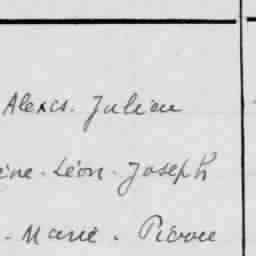 Alexis. Julien
ène. Léon. Joseph
. Marie. Pierre